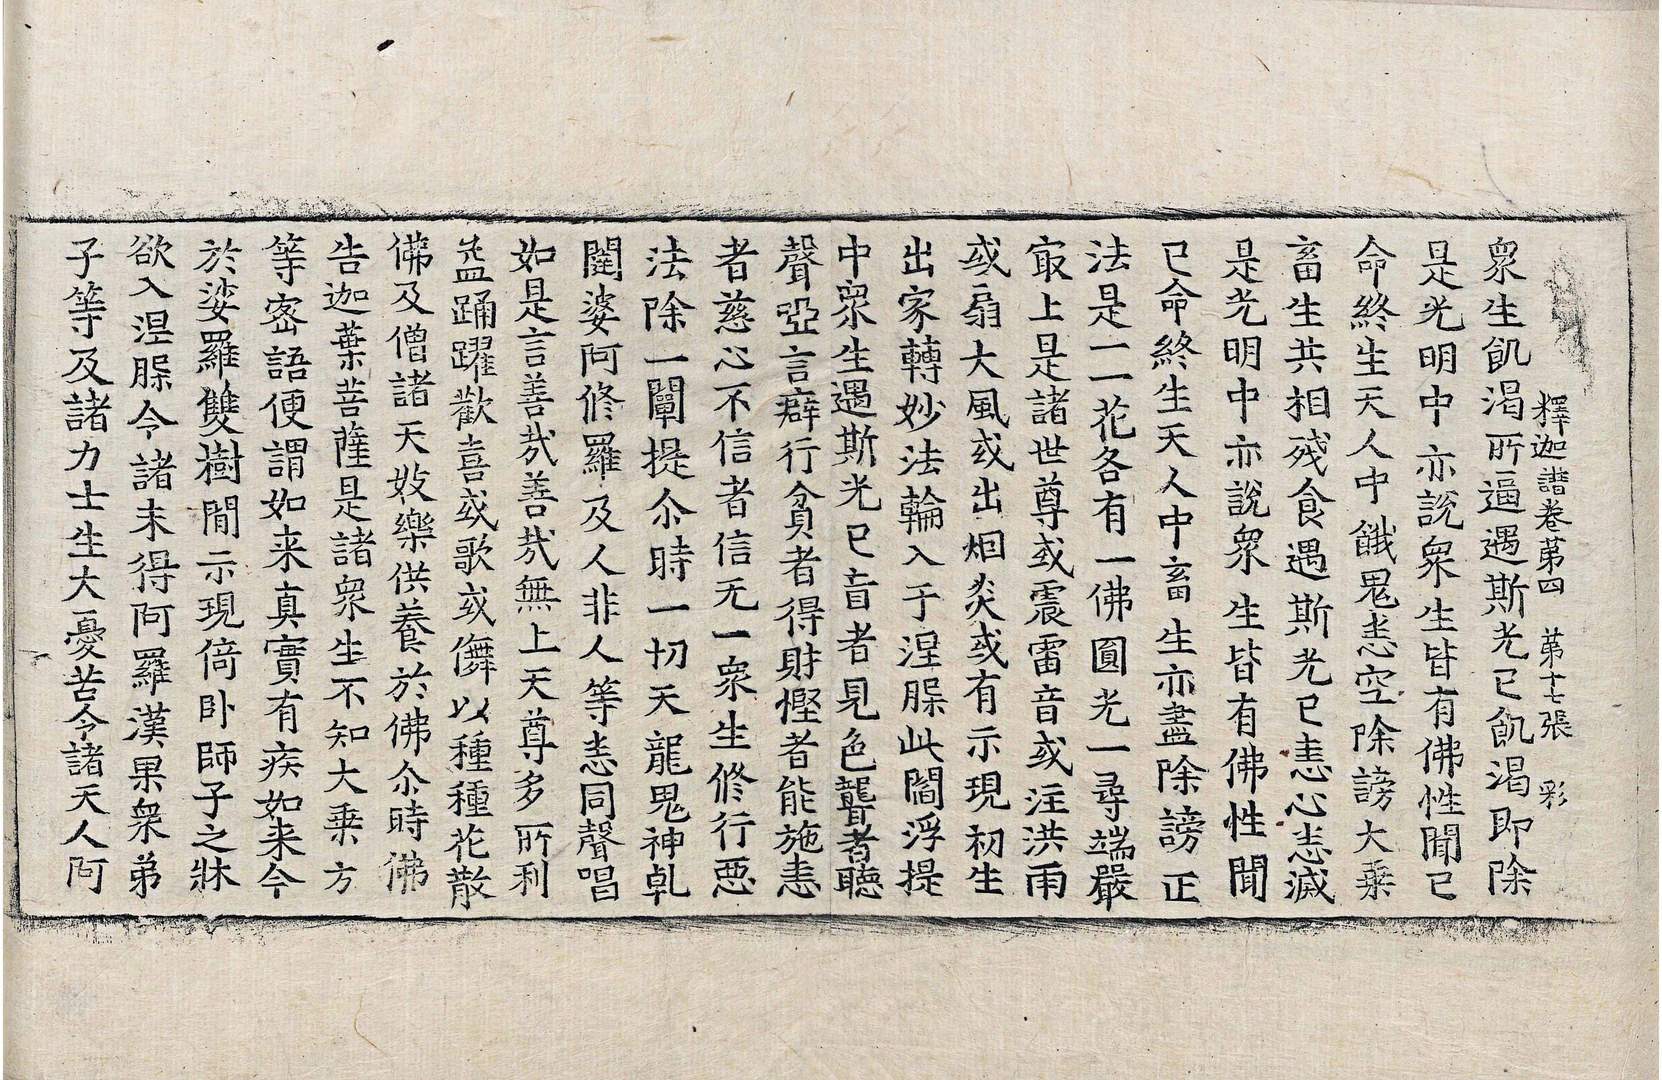 釋迦譜卷苐四　苐十七張　彩
衆生飢渴所逼遇斯光已飢渴即除
是光明中亦說衆生皆有佛性聞已
命終生天人中餓鬼悉空除謗大乗
畜生共相殘食遇斯光已恚心悉滅
是光明中亦說衆生皆有佛性聞
已命終生天人中畜生亦盡除謗正
法是一一花各有一佛圓光一尋端嚴
㝡上是諸世尊或震雷音或注洪雨
或扇大風或出烟炎或有示現初生
出家轉妙法輪入于涅槃此閻浮提
中衆生遇斯光已盲者見色聾者聽
聲啞言癖行貪者得財慳者能施恚
者慈心不信者信无一衆生修行惡
法除一闡提尒時一切天龍鬼神乹
闥婆阿修羅及人非人等悉同聲唱
如是言善哉善哉無上天尊多所利
益踊躍歡喜或歌或儛以種種花散
佛及僧諸天妓樂供養於佛尒時佛
告迦葉菩薩是諸衆生不知大乗方
等宻語便謂如来真實有疾如来今
於娑羅雙樹間示現倚卧師子之牀
欲入涅槃令諸未得阿羅漢果衆弟
子等及諸力士生大憂苦令諸天人阿